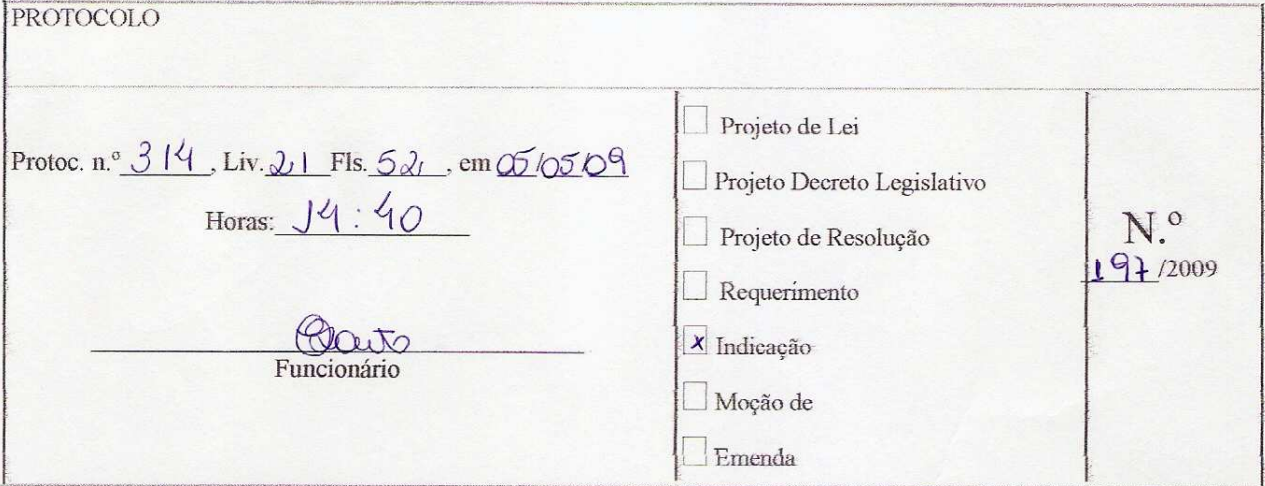 PROTOCOLO
Protoc. n.º 314, Liv. 21 Fls. 52, em 05/05/09
Horas: 14:40
Funcionário
Projeto de Lei
Projeto Decreto Legislativo
Projeto de Resolução
Requerimento
x Indicação
Moção de
Emenda
N.º
197/2009